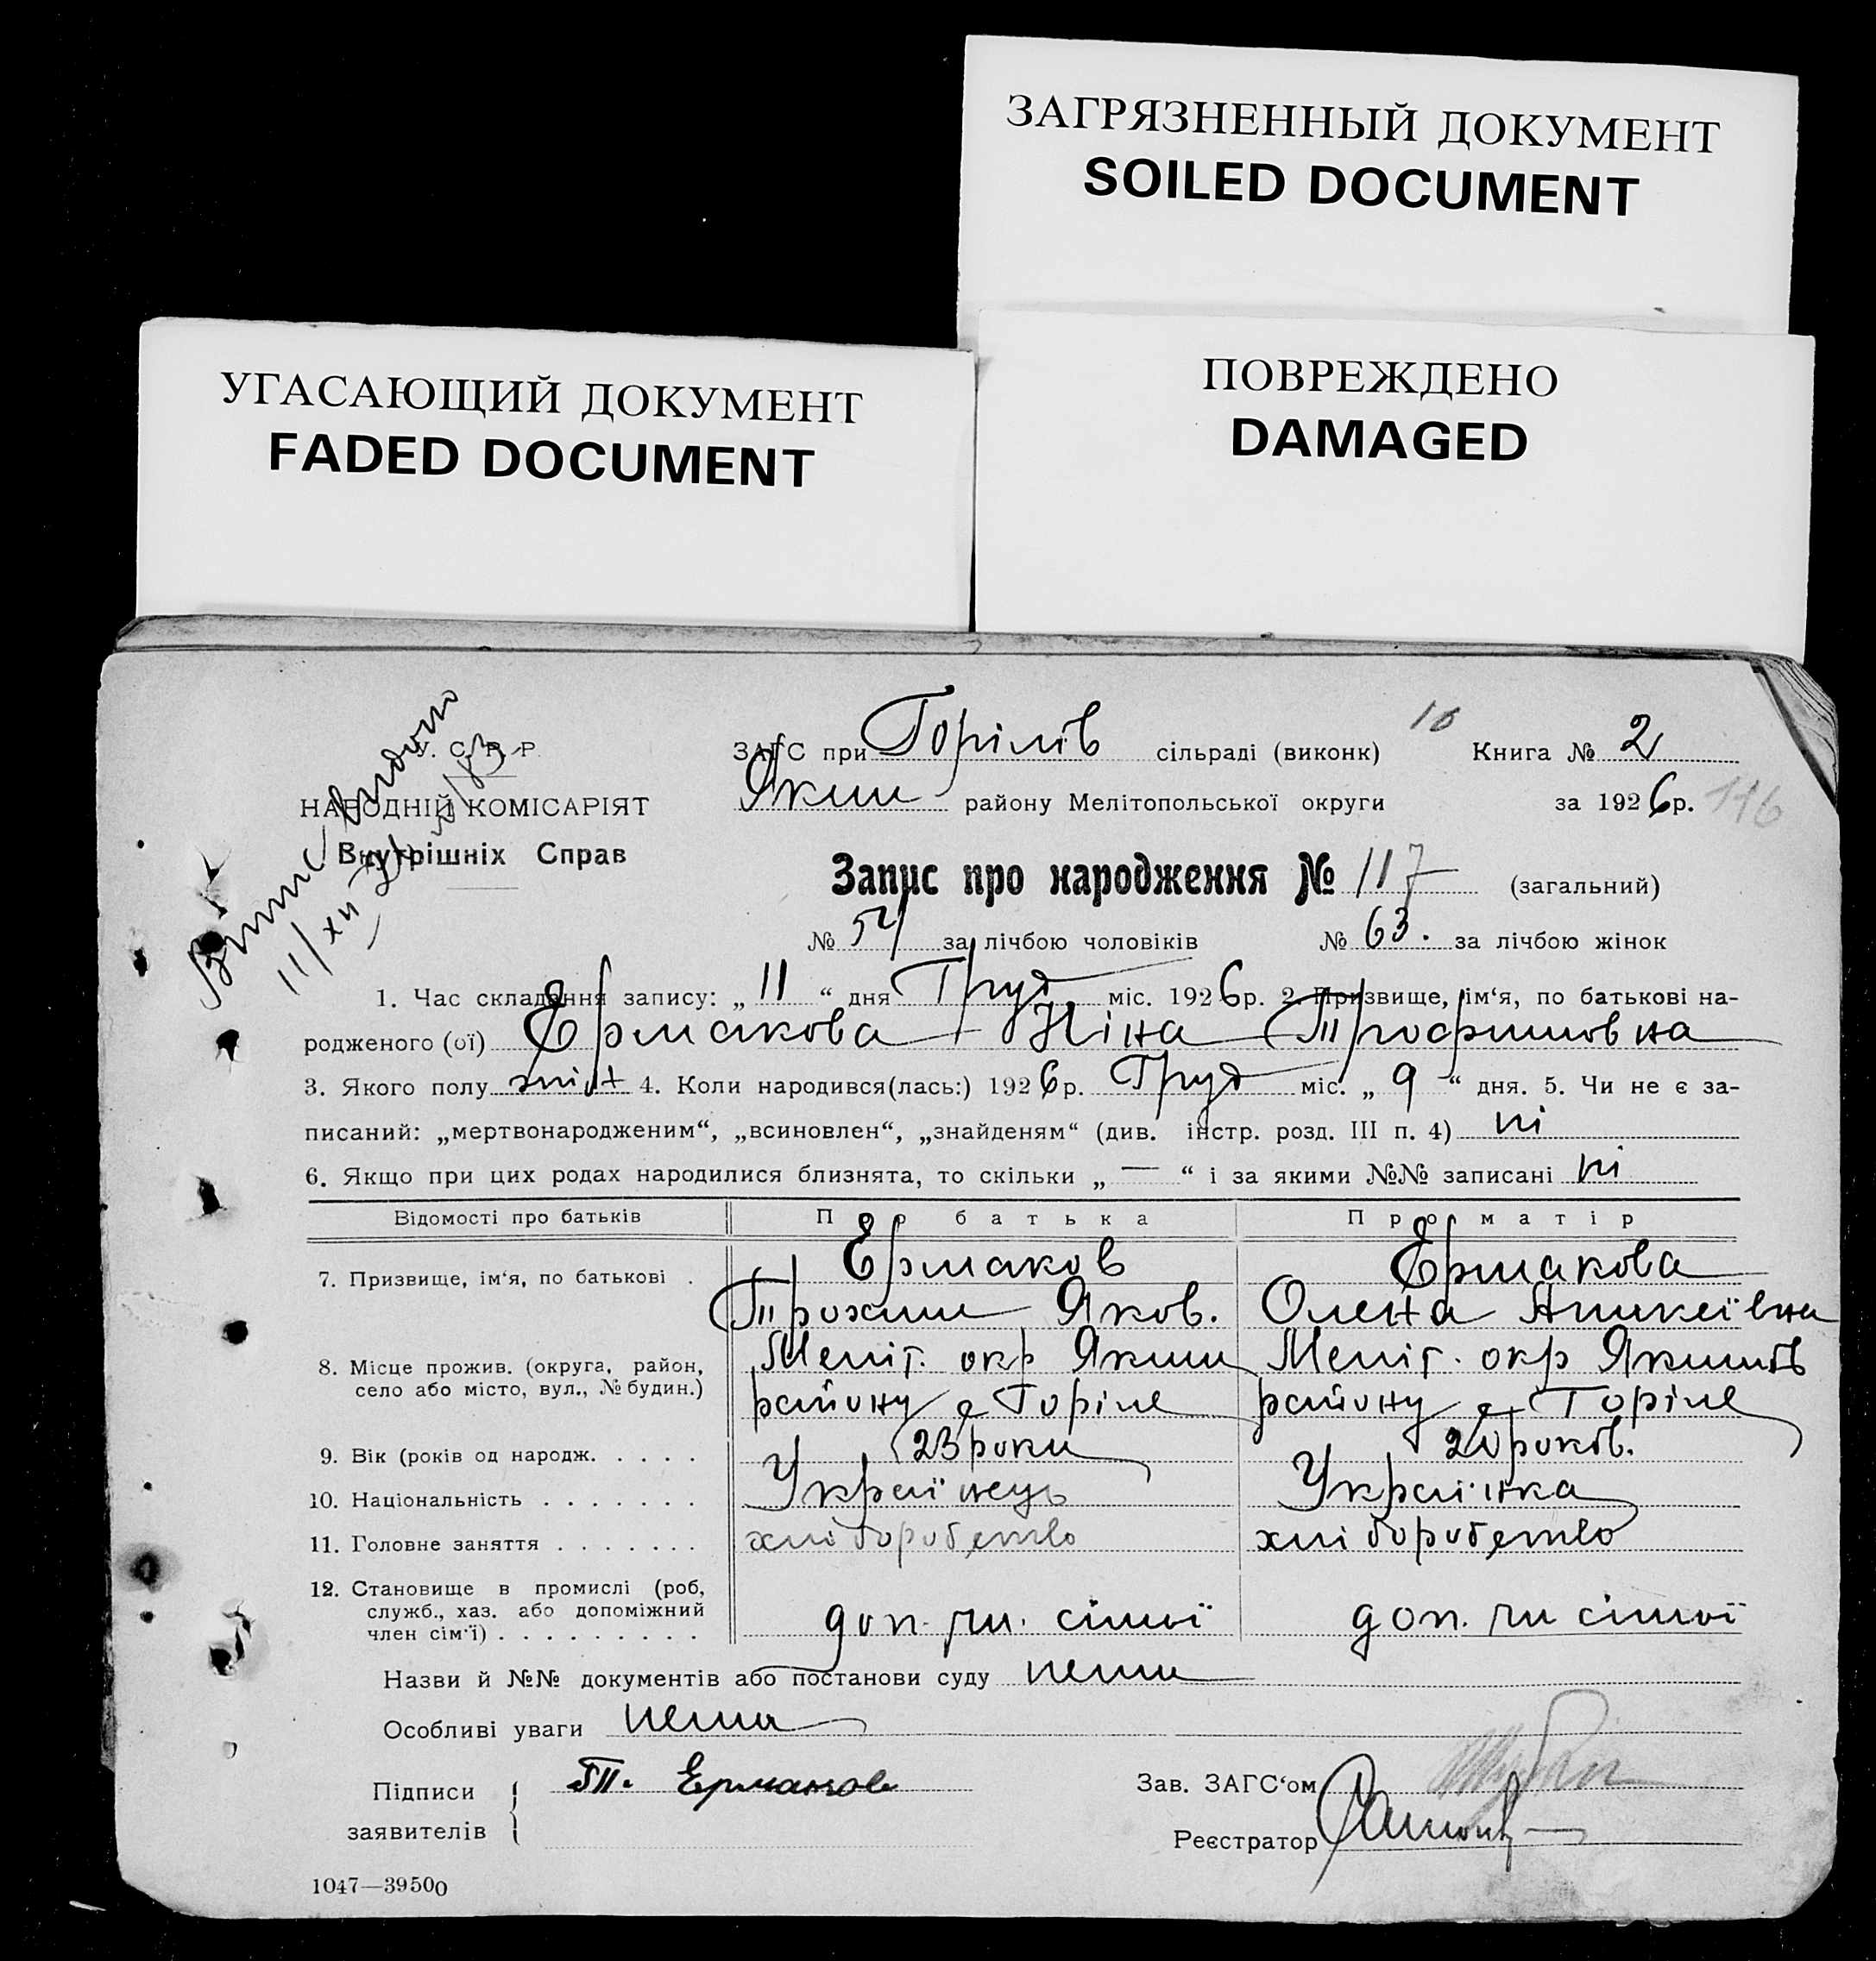 ЗАГРЯЗНЕННЫЙ ДОКУМЕНТ
SOILED DOCUMENT
УГАСАЮЩИЙ ДОКУМЕНТ
FADED DOCUMENT
ПОВРЕЖДЕНО
DAMAGED
У. С. Р. Р.
НАРОДНІЙ КОМІСАРІЯТ
Внутрішніх Справ
11/XII
ЗАГС при Горілів сільраді (виконк) 10 Книга № 2
Яким району Мелітопольської округи за 1926р. 116
Запис про народження № 117 (загальний)
№ 54 за лічбою чоловіків № 63. за лічбою жінок
1. Час складання запису: „ 11 “ дня Груд міс. 1926р. 2. Призвище, ім‘я, по батькові на-
родженого (ої) Ермакова Ніна Трофимовна
3. Якого полу жіно 4. Коли народився(лась:) 1926р. Груд міс. „ 9 “ дня. 5. Чи не є за-
писаний: „мертвонародженим“, „всиновлен“, „знайденям“ (див. інстр. розд. III п. 4) ні
6. Якщо при цих родах народилися близнята, то скільки „ — “ і за якими №№ записані ні
Відомості про батьків Про батька Про матір
7. Призвище, ім‘я, по батькові . Ермаков Ермакова
Трохим Яков. Олена
8. Місце прожив. (округа, район, Меліт. окр Яким Меліт. окр Якимів
село або місто, вул., № будин.) району с Горіле району с Горіле
9. Вік (років од народж. . . . . 23 роки 20 років.
10. Національність . . . . . . . Українець Українка
11. Головне заняття . . . . . . . хліборобство хліборобство
12. Становище в промислі (роб,
служб., хаз. або допоміжний доп. чл. сімьї доп. чл сімьї
член сім‘ї) . . . . . . . . .
Назви й №№ документів або постанови суду нема
Особливі уваги нема
Підписи Т. Ермаков Зав. ЗАГС‘ом
заявителів Реєстратор
1047—39500